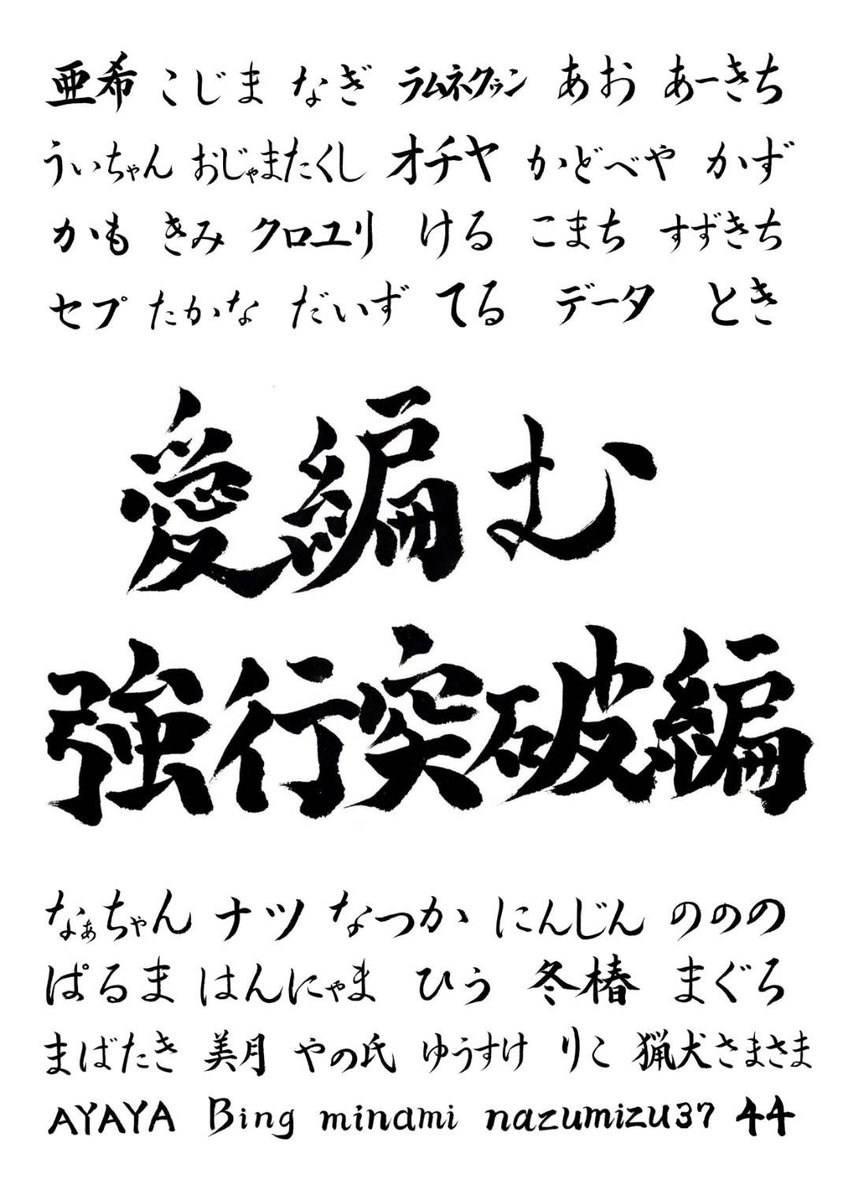 亜希 こじま なぎ ラムネクゥン あお あーきち
うぃちゃん おじゃまたくし オチヤ かどべや かず
かも きみ クロユリ ける こまち すずきち
セプ たかな だいず てる データ とき
愛編む
強行突破編
なぁちゃん ナツ なつか にんじん ののの
ぱるま はんにゃま ひう 冬椿 まぐろ
まばたき 美月 やの氏 ゆうすけ りこ 猟犬さまさま
AYAYA Bing minami nazumizu37 44